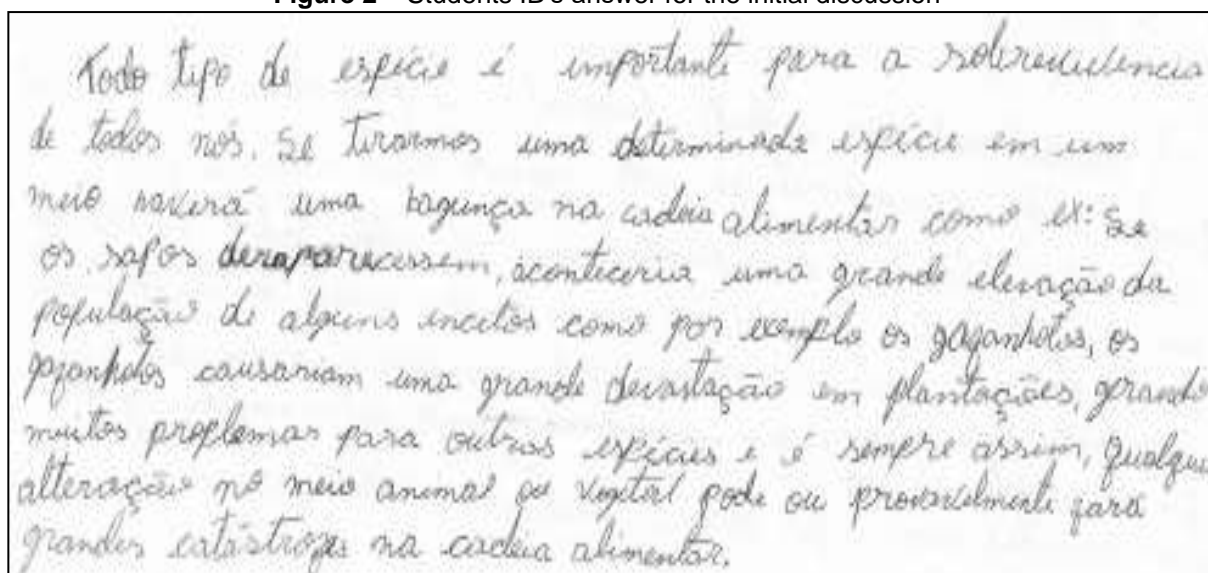 Figure 2 – Students ID's answer for the initial discussion
Todo tipo de espécie é importante para a sobrevivencia
de todos nós. Se tirarmos uma determinada espécie em um
meio haverá uma bagunça na cadeia alimentar como ex: Se
os sapos desaparecessem, aconteceria uma grande elevação da
população de alguns incetos como por exemplo os gafanhotos, os
gafanhotos causariam uma grande devastação em plantações, gerando
muitos problemas para outras espécies e é sempre assim, qualquer
alteração no meio animal ou vegetal pode ou provavelmente fará
grandes catástrofes na cadeia alimentar.